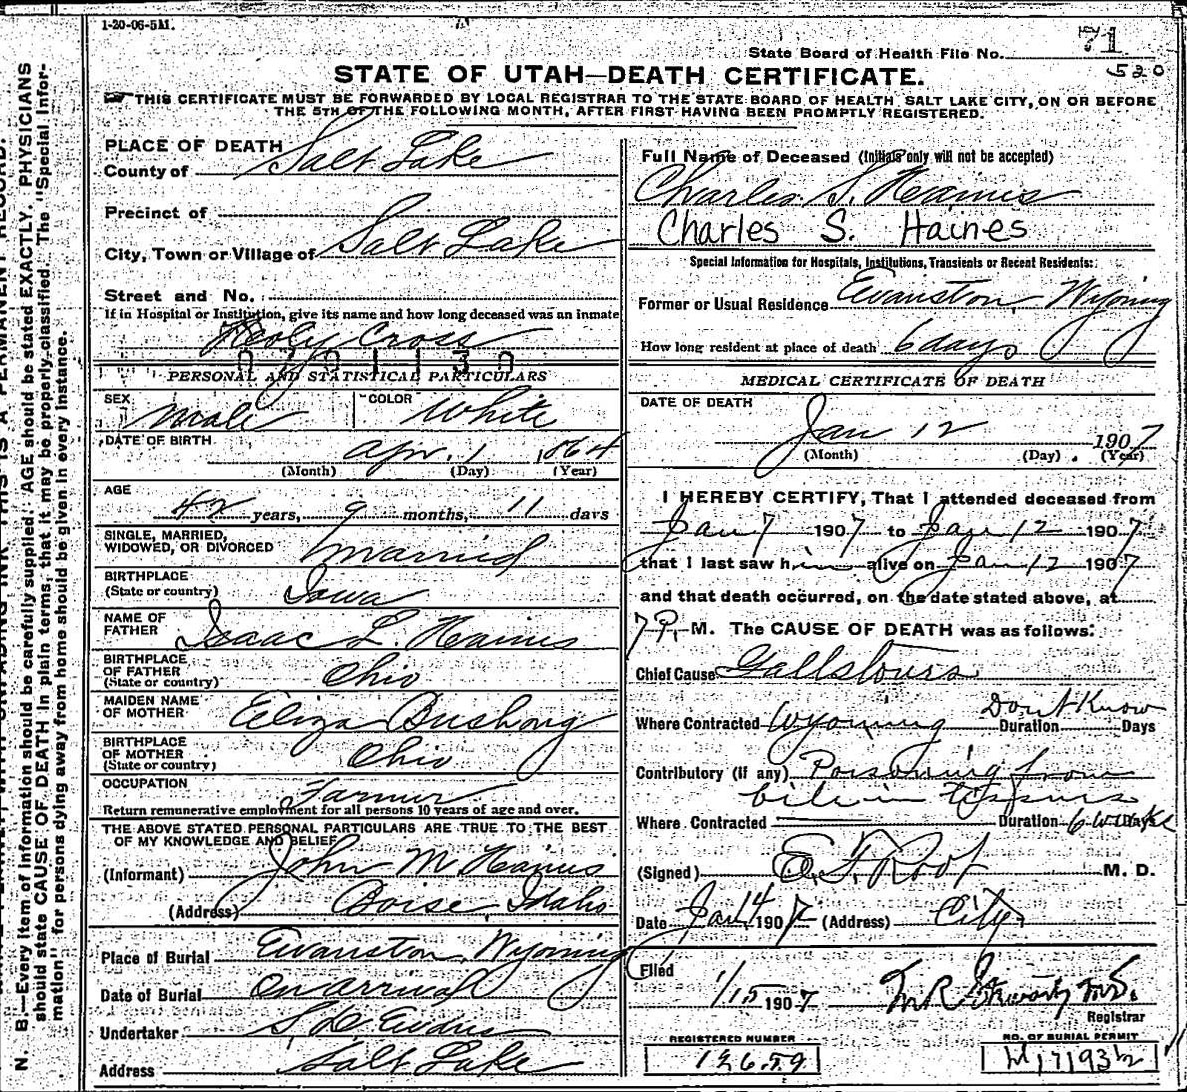 1-20-06-5M.
State Board of Health File No. 71
530
STATE OF UTAH—DEATH CERTIFICATE.
THIS CERTIFICATE MUST BE FORWARDED BY LOCAL REGISTRAR TO THE STATE BOARD OF HEALTH SALT LAKE CITY, ON OR BEFORE
THE 5TH OF THE FOLLOWING MONTH, AFTER FIRST HAVING BEEN PROMPTLY REGISTERED.
PLACE OF DEATH
County of Salt Lake
Precinct of
City, Town or Village of Salt Lake
Street and No.:
If in Hospital or Institution, give its name and how long deceased was an inmate
Holy Cross
PERSONAL AND STATISTICAL PARTICULARS
SEX Male COLOR White
DATE OF BIRTH
Apr. 1 1864
(Month) (Day) (Year)
AGE
42 years, 9 months, 11 days
SINGLE, MARRIED,
WIDOWED, OR DIVORCED Married
BIRTHPLACE
(State or country) Iowa
NAME OF
FATHER Isaac L. Haines
BIRTHPLACE
OF FATHER
(State or country) Ohio
MAIDEN NAME
OF MOTHER Eliza Bushong
BIRTHPLACE
OF MOTHER
(State or country) Ohio
OCCUPATION
Farmer
Return remunerative employment for all persons 10 years of age and over.
THE ABOVE STATED PERSONAL PARTICULARS ARE TRUE TO THE BEST
OF MY KNOWLEDGE AND BELIEF
(Informant) John M Haines
(Address) Boise Idaho
Place of Burial Evanston, Wyoming
Date of Burial On arrival
Undertaker
Address Salt Lake
Full Name of Deceased (Initials only will not be accepted)
Charles S. Haines
Charles S. Haines
Special Information for Hospitals, Institutions, Transients or Recent Residents:
Former or Usual Residence Evanston Wyoming
How long resident at place of death 6 days
MEDICAL CERTIFICATE OF DEATH
DATE OF DEATH
Jan 12 1907
(Month) (Day) (Year)
I HEREBY CERTIFY, That I attended deceased from
Jan 7 1907 to Jan 12 1907
that I last saw him alive on Jan 12 1907
and that death occurred, on the date stated above, at
7 P. M. The CAUSE OF DEATH was as follows:
Chief Cause Gallstones
Where Contracted Wyoming Duration Don't Know Days
Contributory (if any) Poisoning from
bile in tissues
Where Contracted Duration 6 weeks Days
(Signed) E. F. Root M. D.
Date Jan 14 1907 (Address) City
Filed
1/15 1907 M R Stewart M.D.
Registrar
REGISTERED NUMBER
12659
NO. OF BURIAL PERMIT
N. B.—Every item of information should be carefully supplied. AGE should be stated EXACTLY. PHYSICIANS
should state CAUSE OF DEATH in plain terms, that it may be properly classified. The "Special Infor-
mation" for persons dying away from home should be given in every instance.